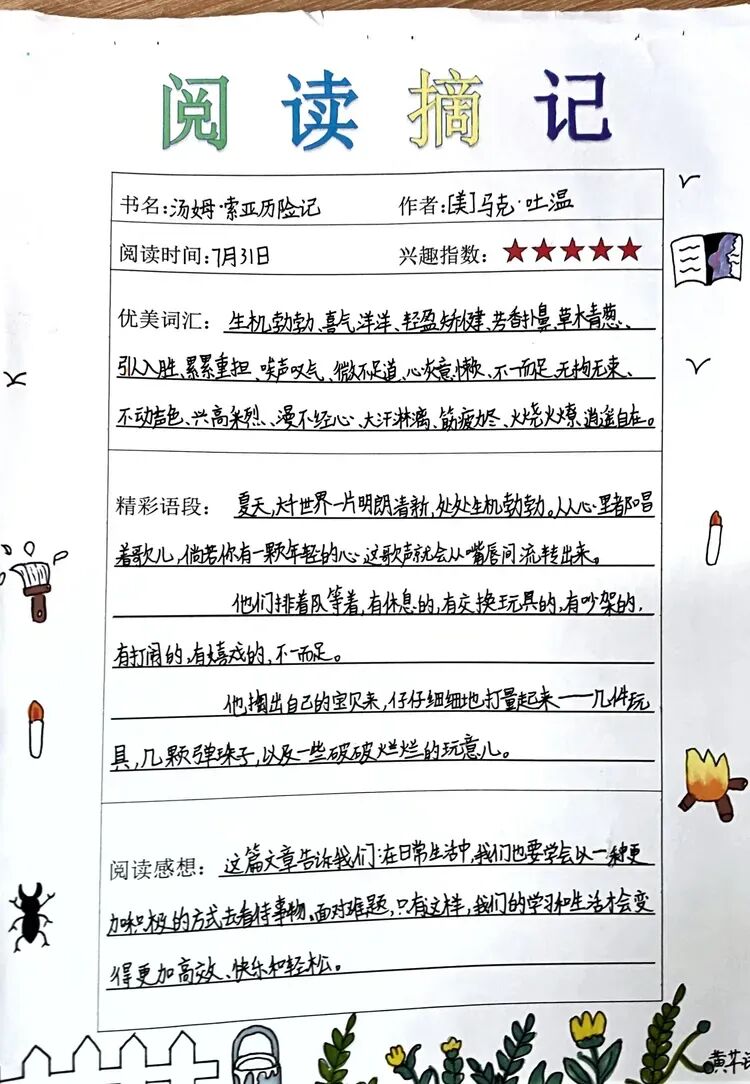 阅读摘记
书名:汤姆·索亚历险记 作者:[美]马克·吐温
阅读时间:7月31日 兴趣指数:★★★★★
优美词汇:生机勃勃、喜气洋洋、轻盈矫健、芳香扑鼻、草木青葱、
引人入胜、累累重担、唉声叹气、微不足道、心灰意懒、不一而足、无拘无束、
不动声色、兴高采烈、漫不经心、大汗淋漓、筋疲力尽、火烧火燎、逍遥自在。
精彩语段: 夏天,大千世界一片明朗清新,处处生机勃勃。人人心里都唱
着歌儿,倘若你有一颗年轻的心 这歌声就会从嘴唇间流转出来。
他们排着队等着,有休息的,有交换玩具的,有吵架的,
有打闹的,有嬉戏的,不一而足。
他掏出自己的宝贝来,仔仔细细地打量起来——几件玩
具,几颗弹珠子,以及一些破破烂烂的玩意儿。
阅读感想: 这篇文章告诉我们:在日常生活中,我们也要学会以一种更
加积极的方式去看待事物、面对难题,只有这样,我们的学习和生活才会变
得更加高效、快乐和轻松。